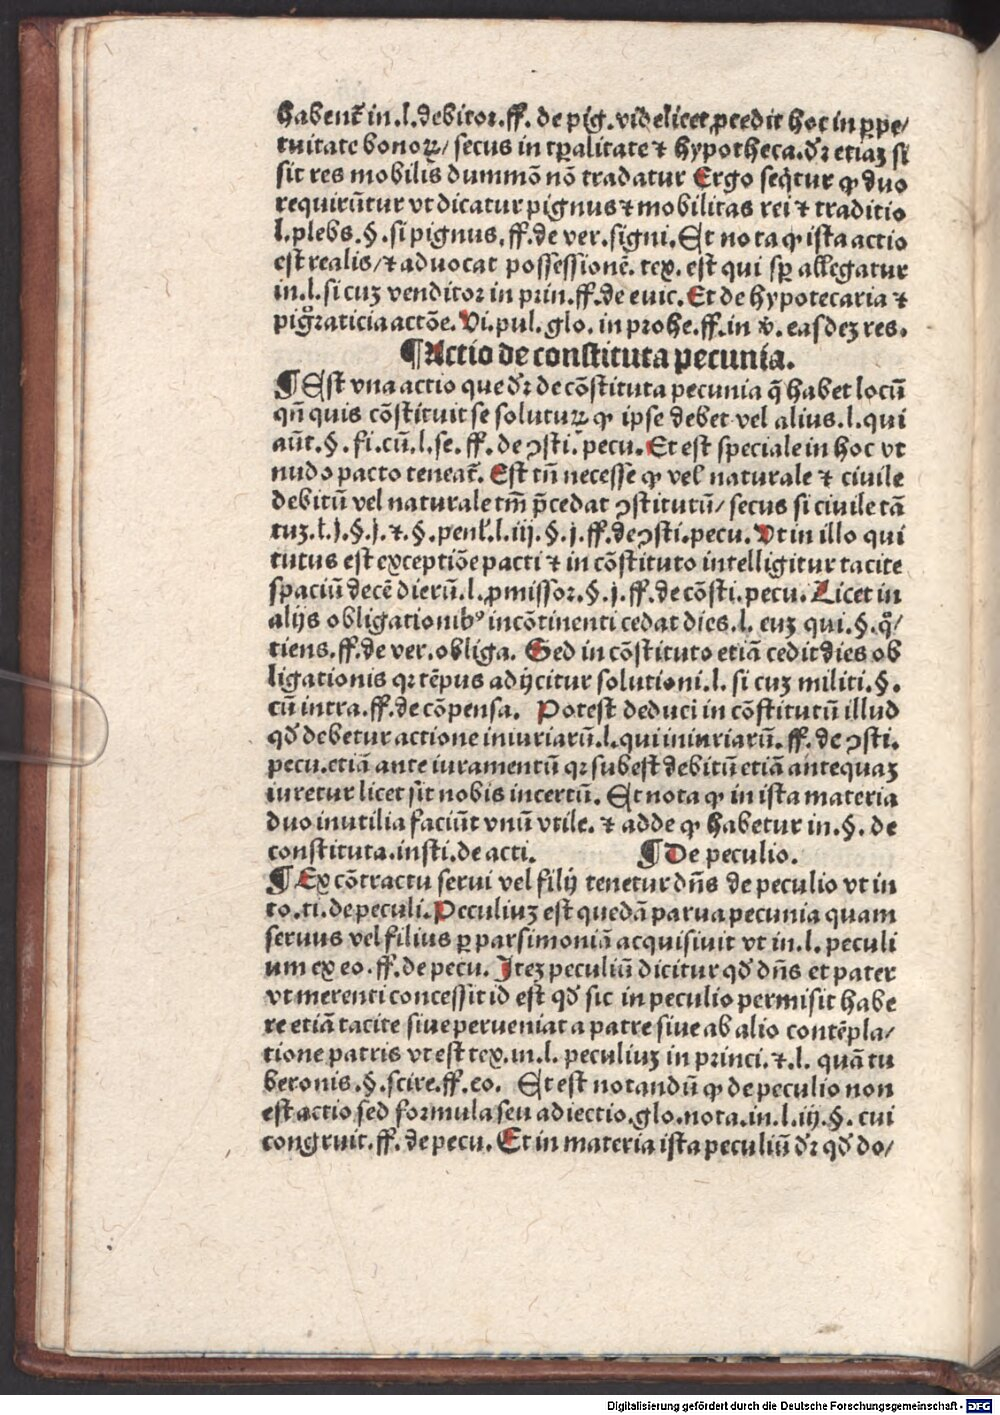 habent̃ in .l. debitor. ff. de pig. videlicet ꝓcedit hoc in ꝑpe/
tuitate bonoꝝ/ secus in tꝑalitate ⁊ hypotheca. dr̃ etiaꝫ si
sit res mobilis dummō nō tradatur Ergo seq̃tur ꝙ duo
requirũtur vt dicatur pignus ⁊ mobilitas rei ⁊ traditio
l. plebs. §. si pignus. ff. de ver. signi. Et nota ꝙ ista actio
est realis/ ⁊ aduocat possessionẽ. tex. est qui sꝑ allegatur
in .l. si cuꝫ venditor in prin. ff. de euic. Et de hypotecaria ⁊
pigͦraticia actōe. Vi. pul. glo. in prohe. ff. in v̾. easdeꝫ res.
¶ Actio de constituta pecunia.
¶ Est vna actio que dr̃ de cōstituta pecunia q̃ habet locũ
qñ quis cōstituit se soluturꝝ ꝙ ipse debet vel alius. l. qui
aũt. §. fi. cũ .l. se. ff. de ꝯsti. pecu. Et est speciale in hoc vt
nudo pacto teneat̃. Est tñ necesse ꝙ vel naturale ⁊ ciuile
debitũ vel naturale tm̃ p̃cedat ꝯstitutũ/ secus si ciuile tā
tuꝫ. l. j. §. j. ⁊ .§. penl̃. l. iij. §. j. ff. de ꝯsti. pecu. Vt in illo qui
tutus est exceptiōe pacti ⁊ in cōstituto intelligitur tacite
spaciũ decẽ dierũ. l. ꝓmissor. §. j. ff. de cōsti. pecu. Licet in
alijs obligationibꝰ incōtinenti cedat dies. l. euꝫ qui. §. qͦ/
tiens. ff. de ver. obliga. Sed in cōstituto etiā cedit dies ob
ligationis qꝛ tẽpus adijcitur solutioni. l. si cuꝫ militi. §.
cũ intra. ff. de cōpensa. Potest deduci in cōstitutũ illud
qd̃ debetur actione iniuriarũ. l. qui iniuriarũ. ff. de ꝯsti.
pecu. etiā ante iuramentũ qꝛ subest debitũ etiā antequaꝫ
iuretur licet sit nobis incertũ. Et nota ꝙ in ista materia
duo inutilia faciũt vnũ vtile. ⁊ adde ꝙ habetur in .§. de
constituta. insti. de acti. ¶ De peculio.
¶ Ex cōtractu serui vel filij tenetur dñs de peculio vt in
to. ti. de peculi. Peculiuꝫ est quedā parua pecunia quam
seruus vel filius ꝑ parsimoniā acquisiuit vt in .l. peculi
um ex eo. ff. de pecu. Iteꝫ peculiũ dicitur qd̃ dñs et pater
vt merenti concessit id est qd̃ sic in peculio permisit habe
re etiā tacite siue perueniat a patre siue ab alio contẽpla/
tione patris vt est tex. in .l. peculiuꝫ in princi. ⁊ .l. quā tu
beronis. §. scire. ff. eo. Et est notandũ ꝙ de peculio non
est actio sed formula seu adiectio. glo. nota. in .l. iij. §. cui
congruit. ff. de pecu. Et in materia ista peculiũ dr̃ qd̃ do/
Digitalisierung gefördert durch die Deutsche Forschungsgemeinschaft - DFG